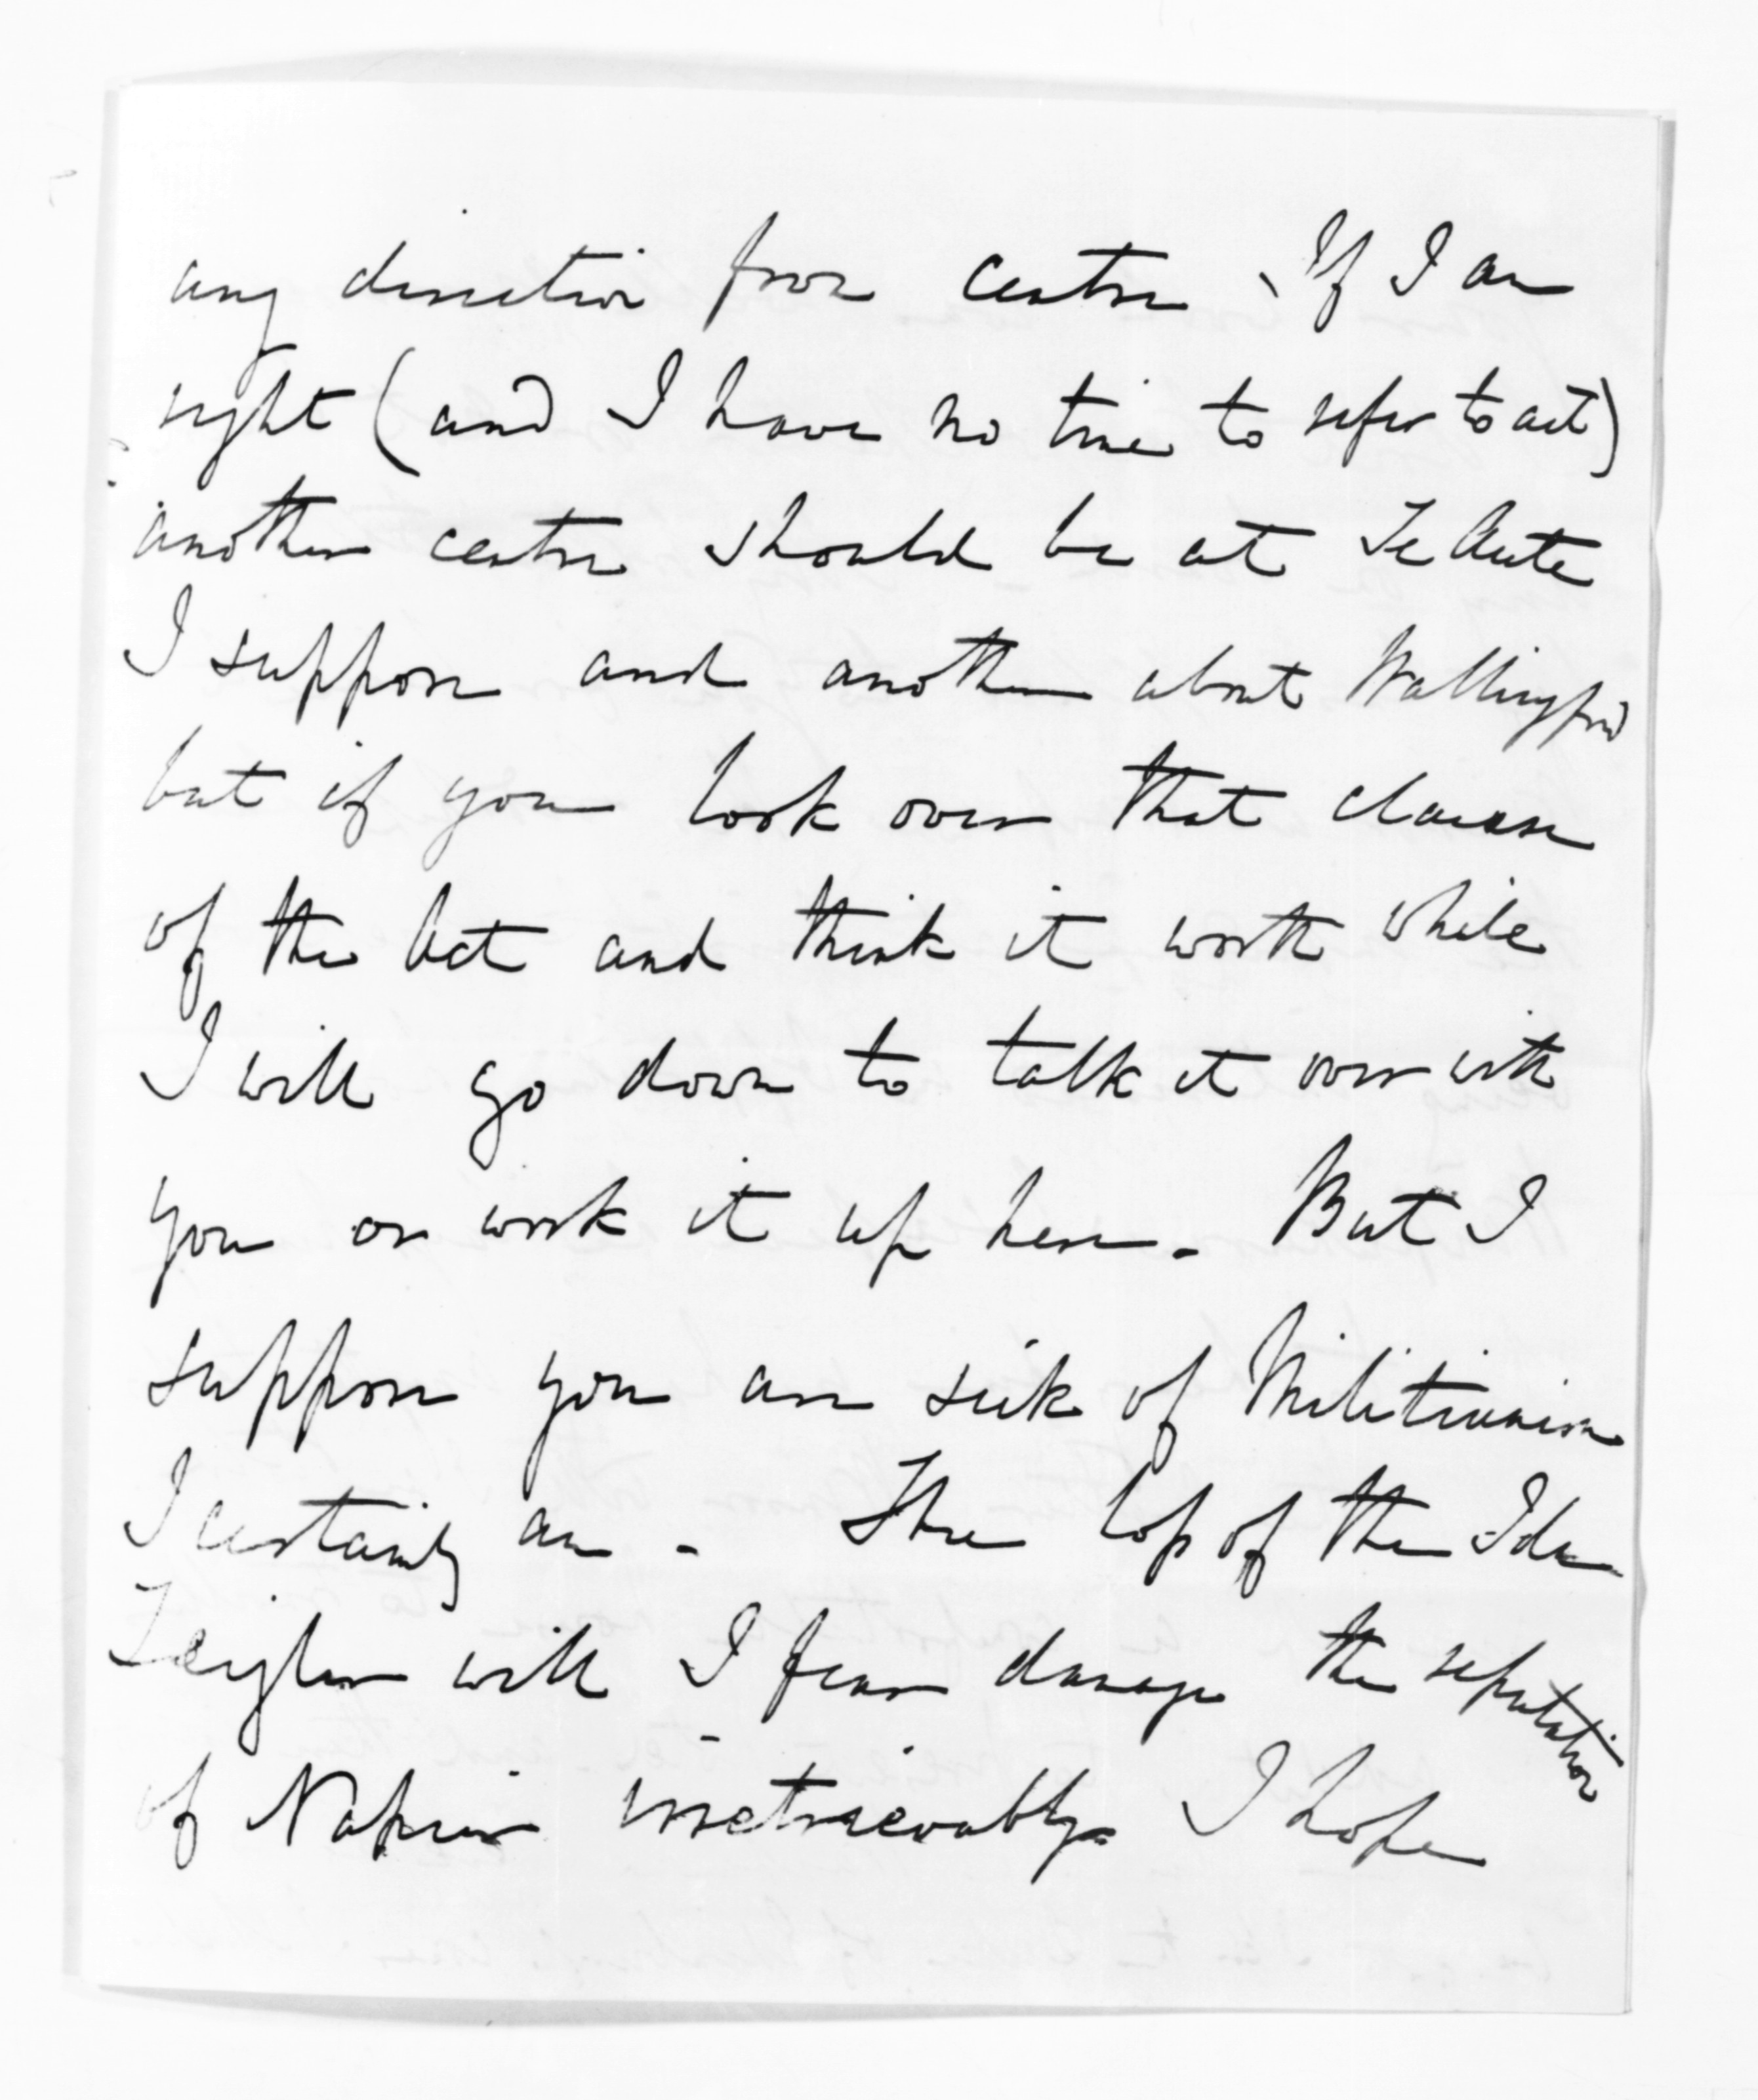 any direction from centre, If I am
right (and I have no time to refer to act)
another centre should be at Te Aute
I suppose and another about Wallingford
but if you look over that clause
of the Act and think it worth while
I will go down to talk it over with
you or work it up here - But I
suppose you are sick of Militiaism
I certainly am - The loss of the Ida
Zeigler will I fear damage the reputation
of Napier irretrievably I hope